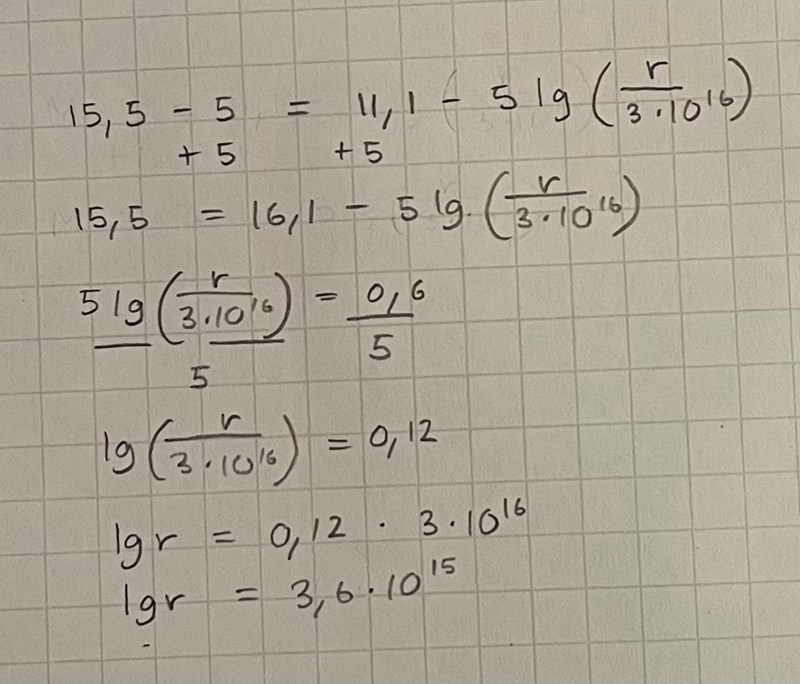 15,5 - 5 = 11,1 - 5 lg (r/3·10¹⁶)
+ 5 + 5
15,5 = 16,1 - 5 lg (r/3·10¹⁶)
5 lg (r/3·10¹⁶)/5 = 0,6/5
lg (r/3·10¹⁶) = 0,12
lg r = 0,12 · 3·10¹⁶
lg r = 3,6·10¹⁵